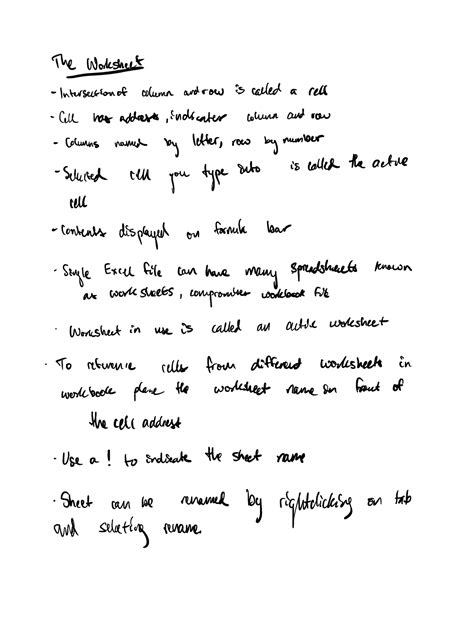 The Worksheet
- Intersection of column and row is called a cell
- Cell has address, indicates column and row
- Columns named by letter, row by number
- Selected cell you type into is called the active
cell
- Contents displayed on formula bar
- Single Excel file can have many spreadsheets known
as worksheets, compromises workbook file
- Worksheet in use is called an active worksheet
- To reference cells from different worksheets in
workbook place the worksheet name in front of
the cell address
- Use a ! to indicate the sheet name
- Sheet can be renamed by rightclicking on tab
and selecting rename.